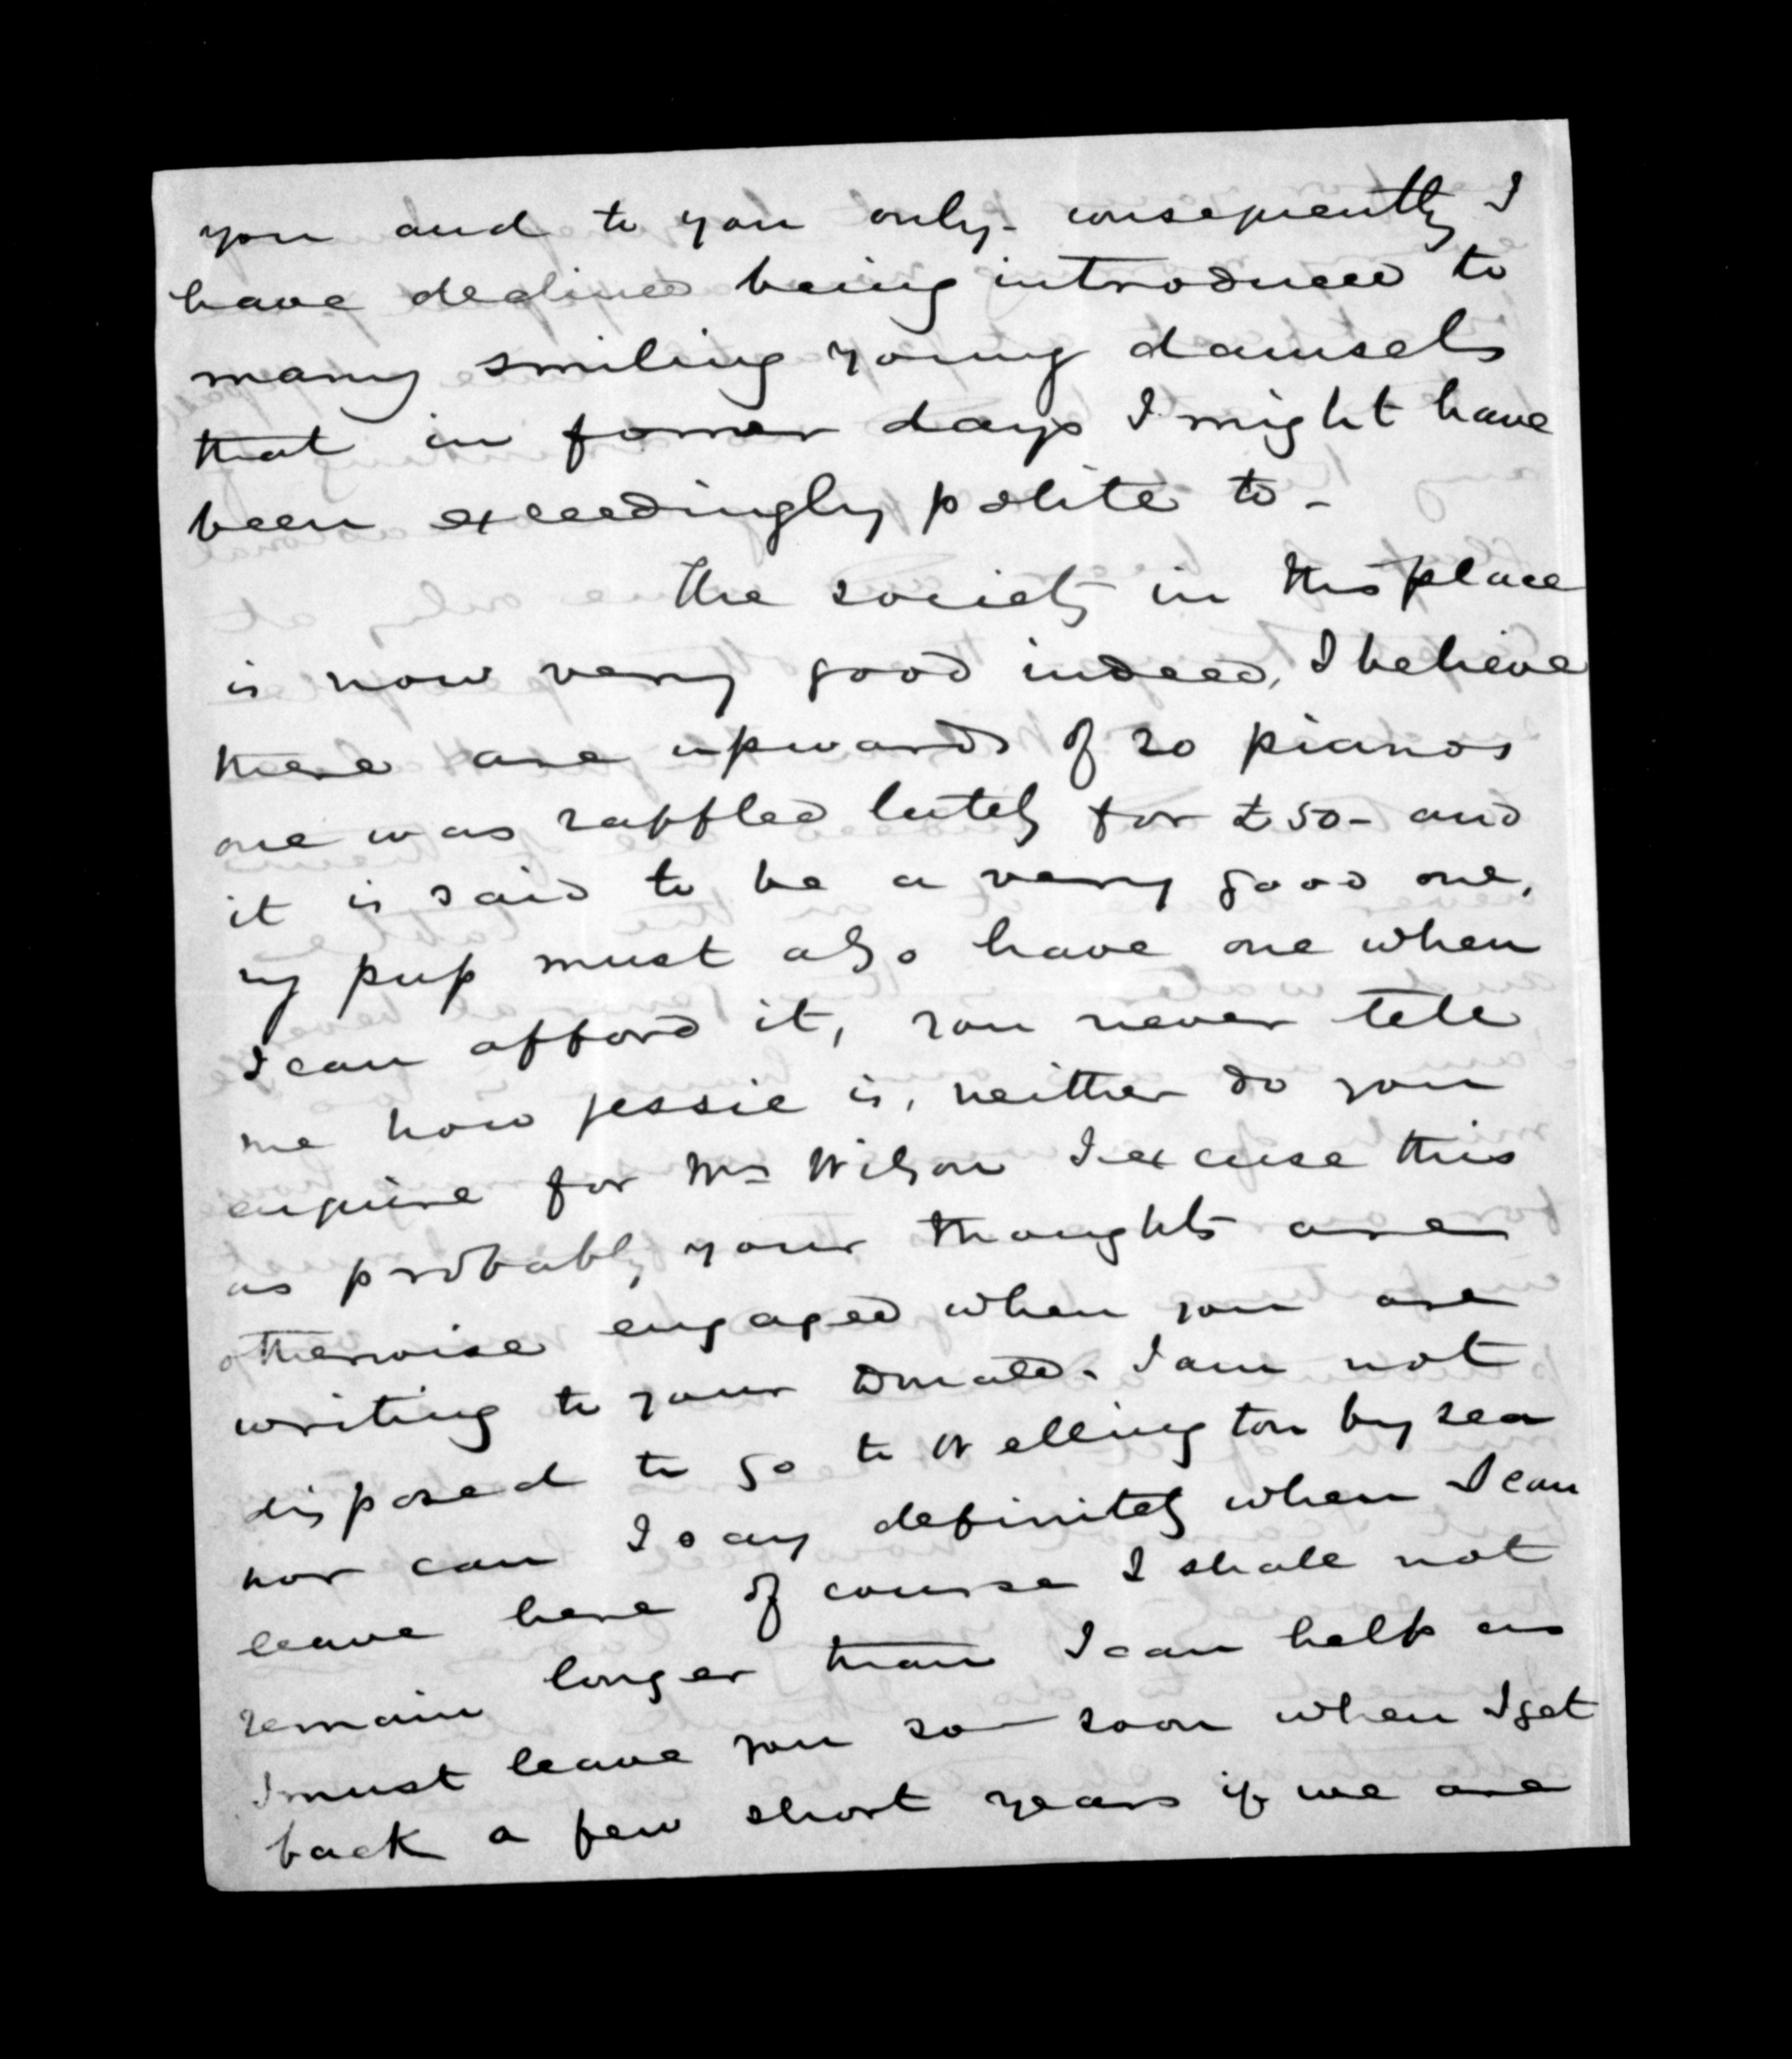 you and to you only - consequently I
have declined being introduced to
many smiling young damsels
that in former days I might have
been exceedingly polite to -
The society in this place
is now very good indeed, I believe
there are upwards of 20 pianos
one was raffled lately for £50 - and
it is said to be a very good one,
my pup must also have one when
I can afford it, you never tell
me how Jessie is, neither do you
enquire for Mrs Wilson I excuse this
as probably your thoughts are
otherwise engaged when you are
writing to your Donald. I am not
disposed to go to Wellington by sea
nor can I say definitely when I can
leave here of course I shall not
remain longer than I can help as
I must leave you so soon when I get
back a few short years if we are